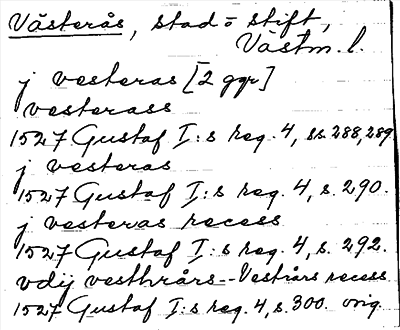 Västerås, stad o stift,
Västm. l.
j vesteras [2 ggr]
vesterass
1527 Gustaf I:s reg. 4, ss. 288, 289
j vesteras
1527 Gustaf I:s reg. 4, s. 290.
j vesteras recess
1527 Gustaf I:s reg. 4, s. 292.
vdij vesthrårs -- Vestrårs recess
1527 Gustaf I:s reg. 4, s. 300. orig.